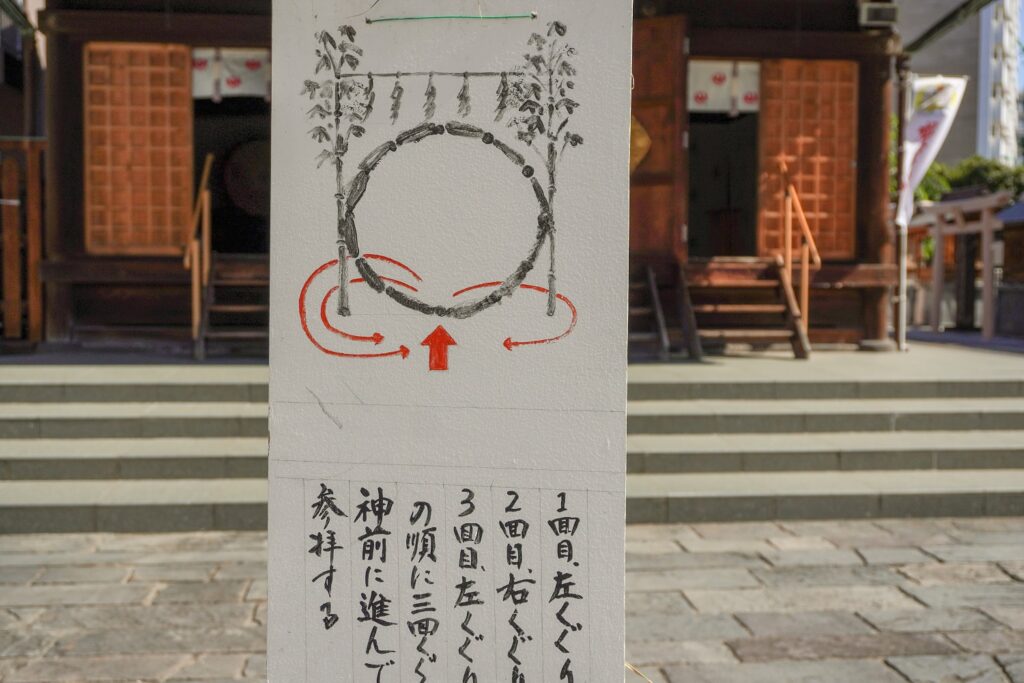 1回目、左くぐり
2回目、右くぐり
3回目、左くぐり
の順に三回くぐ
神前に進んで
参拝する